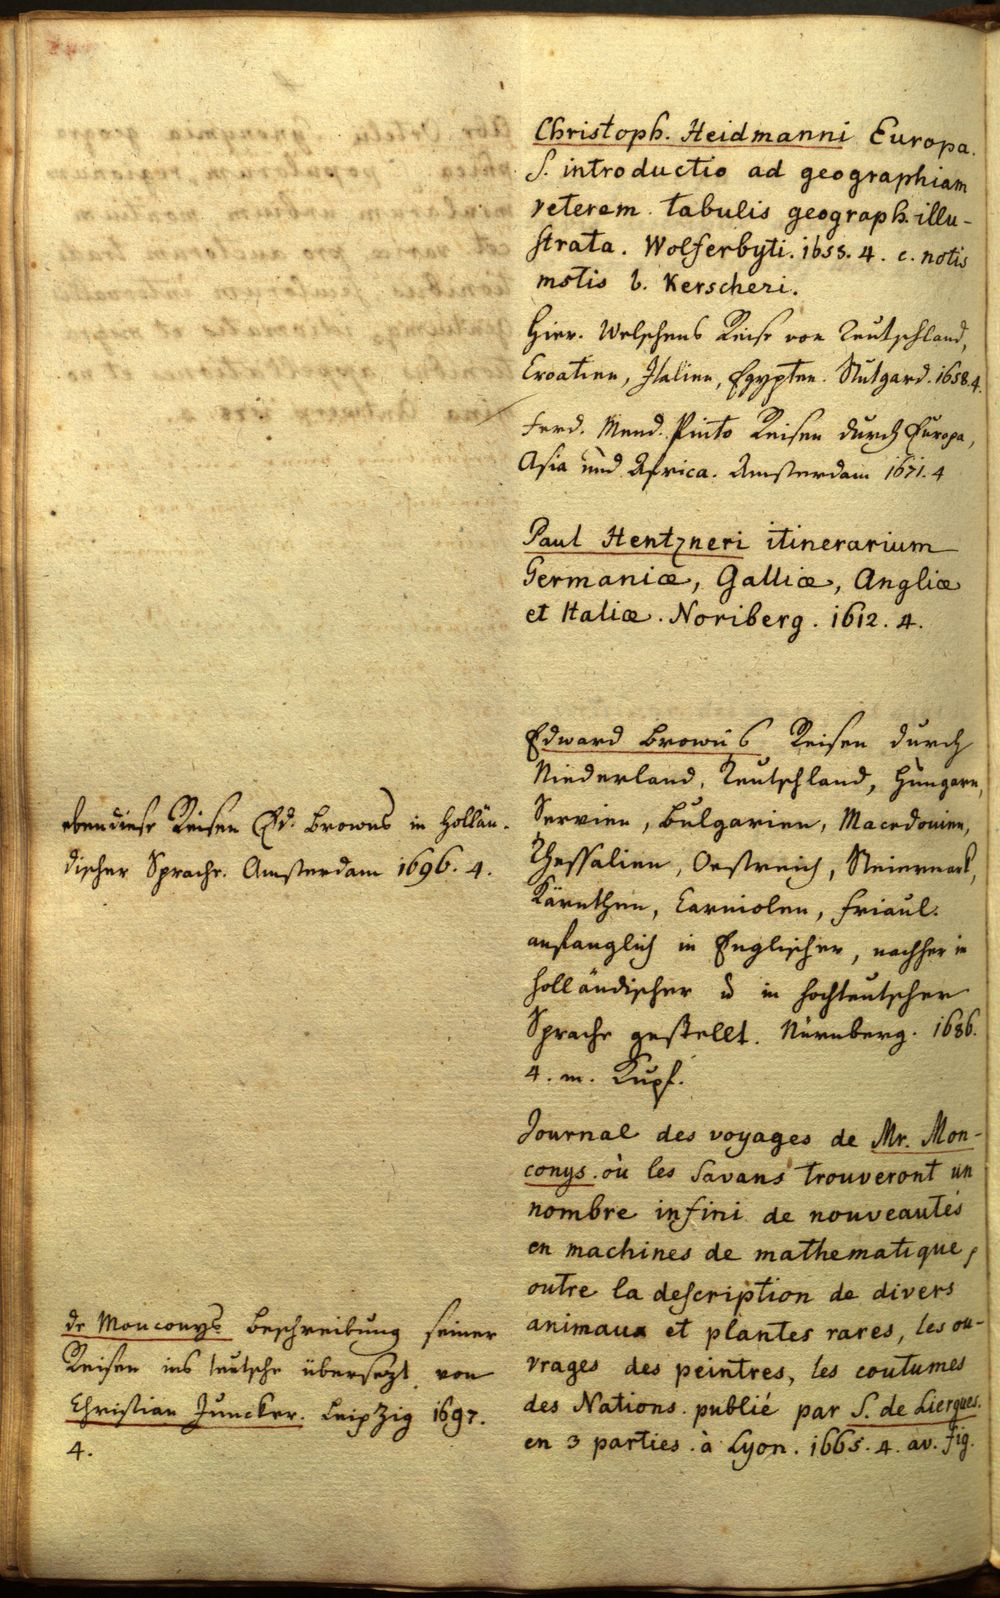 Christoph. Heidmanni Europa.
S. introductio ad geographiam
veterem tabulis geograph. illu-
strata. Wolferbyti. 1658. 4. c. notis
mstis b. Kerscheri.
Hier. Welschens Reise von Teutschland,
Croatien, Italien, Egypten. Stutgard. 1658. 4.
Ferd. Mend. Pinto Reisen durch Europa,
Asia und Africa. Amsterdam 1671. 4
Paul Hentzneri itinerarium
Germaniæ, Galliæ, Angliæ
et Italiæ. Noriberg. 1612. 4.
Edward Browns Reisen durch
Niederland, Teutschland, Hungarn,
Servien, Bulgarien, Macedonien,
Thessalien, Oestreich, Steiermark,
Kärnthen, Carniolen, Friaul.
anfänglich in Englischer, nachher in
holländischer u in hochteutscher
Sprache gestellt. Nürnberg. 1686.
4. m. Kupf.
ebendiese Reisen Ed. Browns in hollän-
discher Sprache. Amsterdam 1696. 4.
Journal des voyages de Mr. Mon-
conys. où les Savans trouveront un
nombre infini de nouveautés
en machines de mathematique,
outre la description de divers
animaux et plantes rares, les ou-
vrages des peintres, les coutumes
des Nations. publié par S. de Liergues.
en 3 parties. à Lyon. 1665. 4. av. fig.
de Monconys beschreibung seiner
Reisen ins teutsche übersezt von
Christian Juncker. Leipzig 1697.
4.